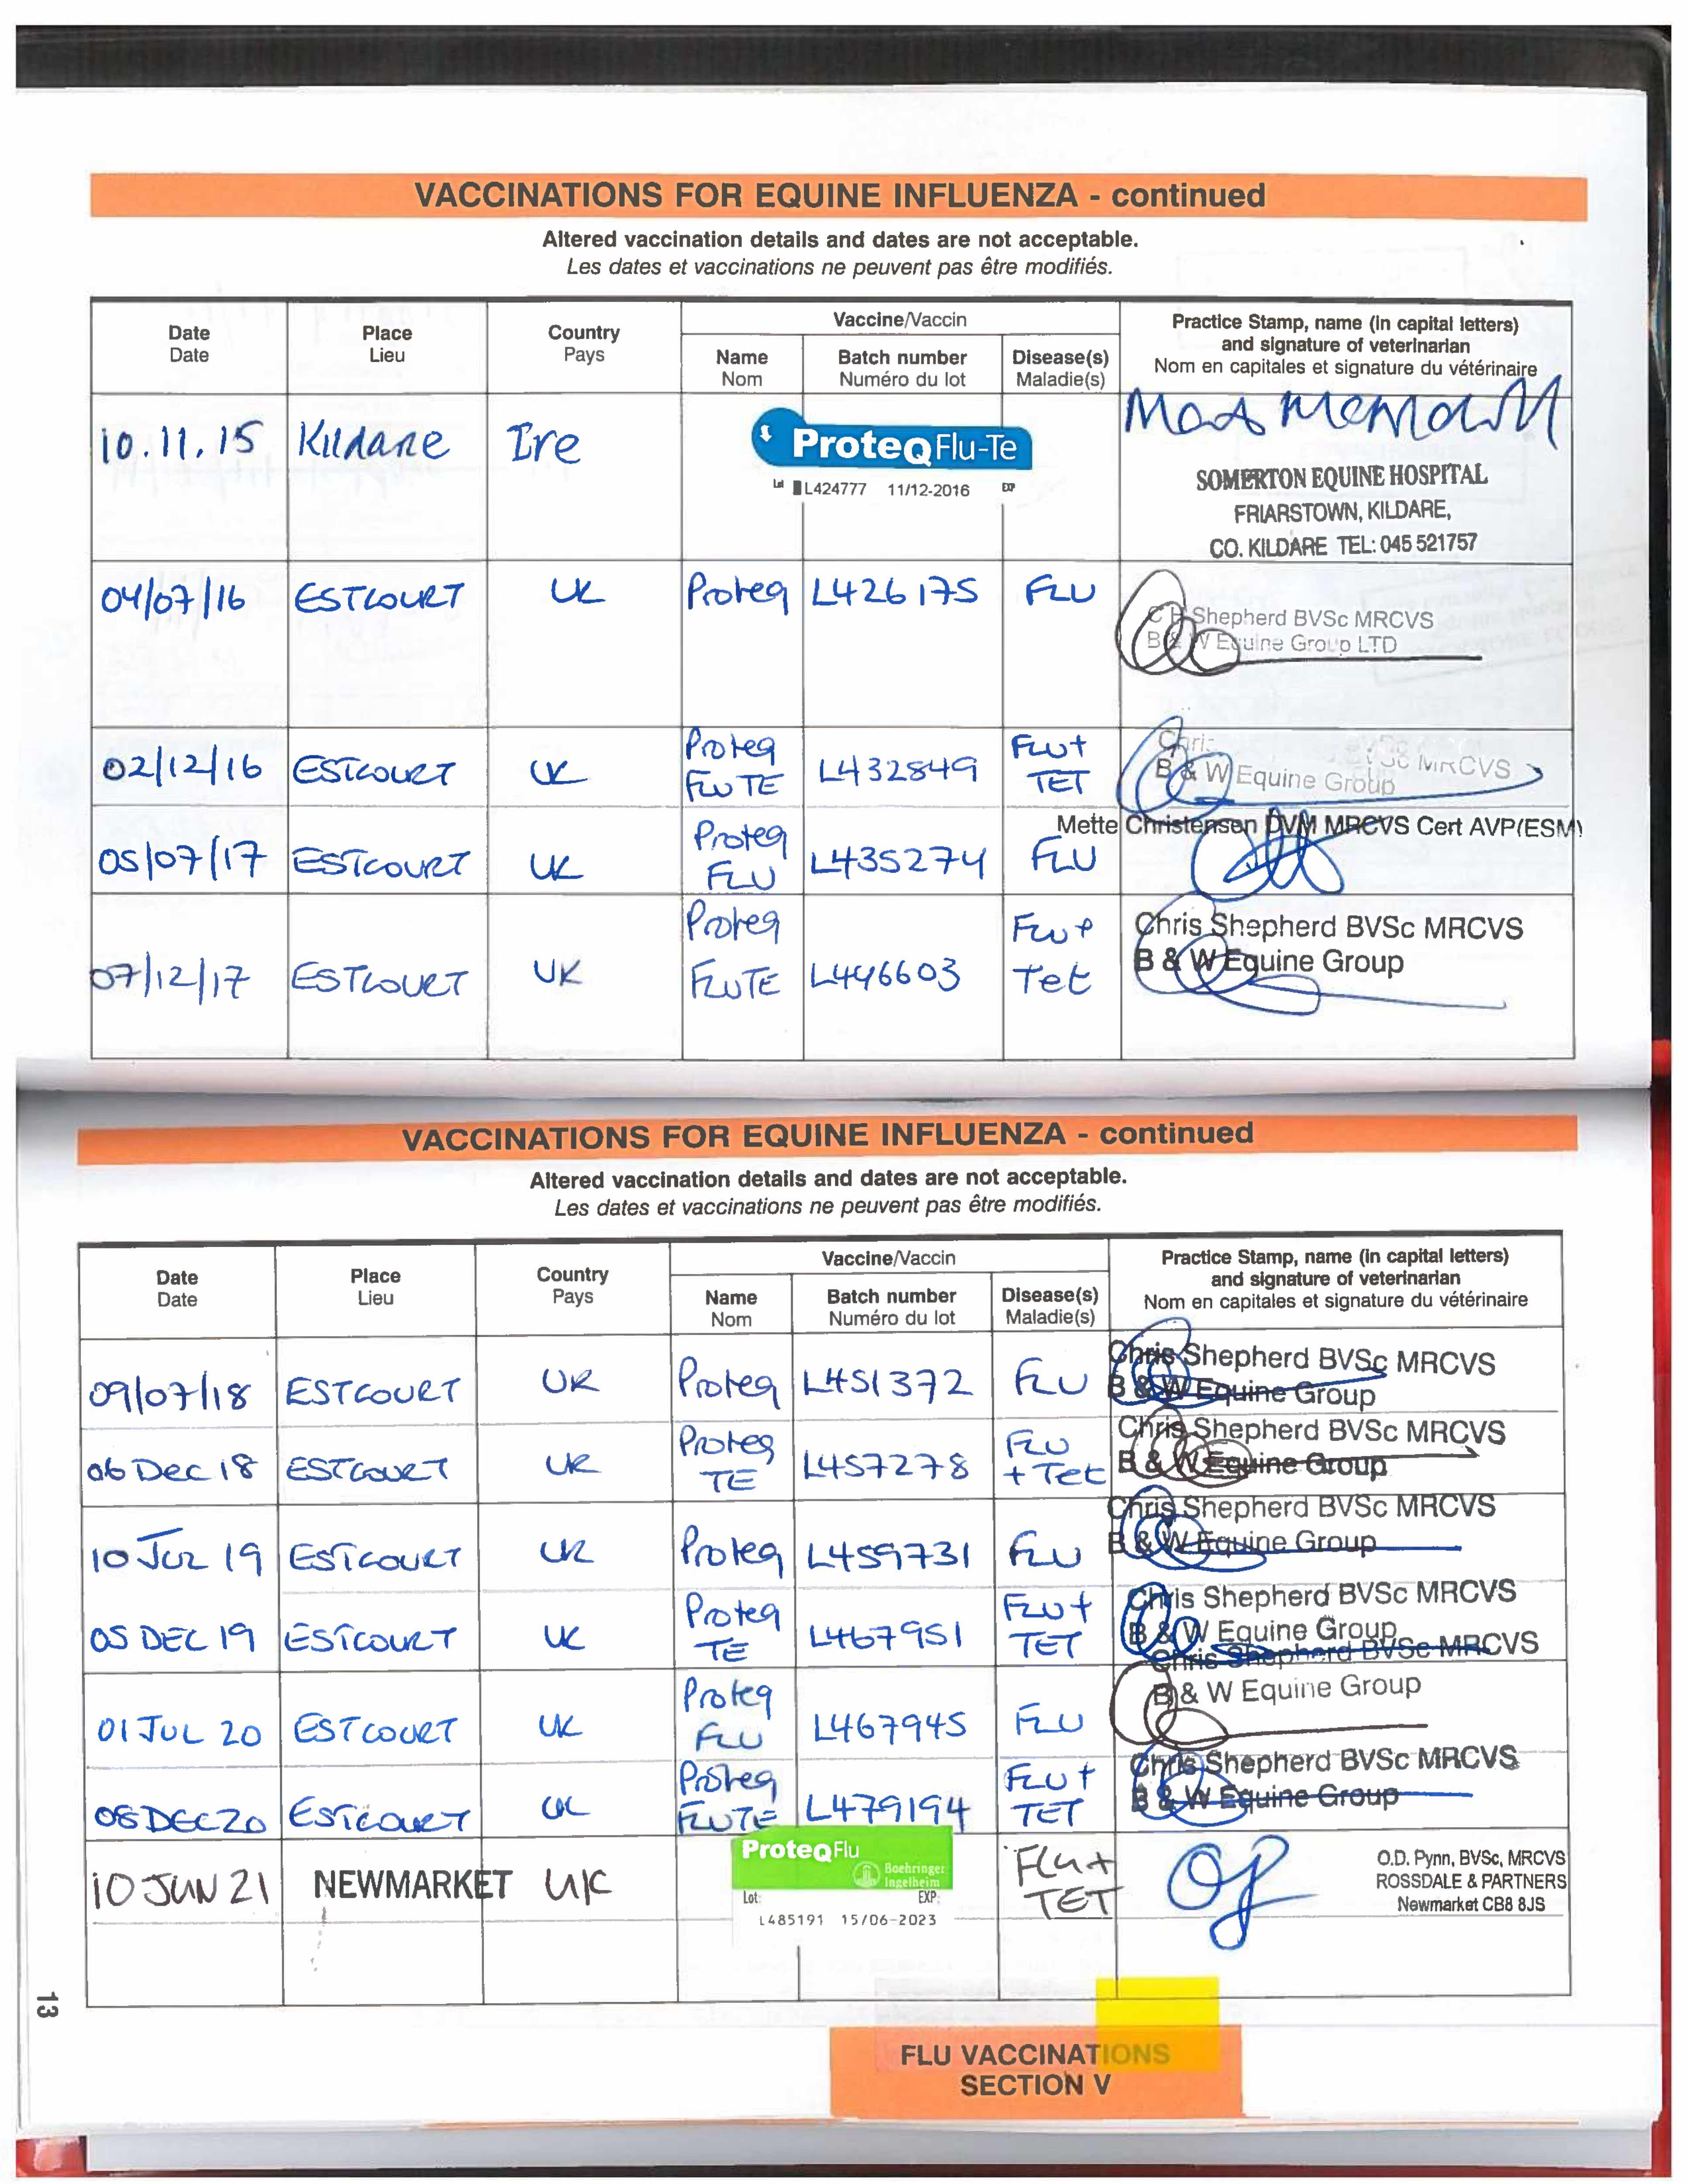 VACCINATIONS FOR EQUINE INFLUENZA - continued
Altered vaccination details and dates are not acceptable.
Les dates et vaccinations ne peuvent pas être modifiés.
Date Place Country Vaccine/Vaccin Practice Stamp, name (in capital letters)
Date Lieu Pays Name Batch number Disease(s) and signature of veterinarian
Nom Numéro du lot Maladie(s) Nom en capitales et signature du vétérinaire
10.11.15 Kildare Ire ProteqFlu-Te
Lot L424777 11/12-2016 EXP
SOMERTON EQUINE HOSPITAL
FRIARSTOWN, KILDARE,
CO. KILDARE TEL: 045 521757
04/07/16 ESTCOURT UK Proteq L426175 FLU
Shepherd BVSc MRCVS
B & W Equine Group LTD
02/12/16 ESTCOURT UK Proteq FLUTE L432849 FLU+ TET
MRCVS
B & W Equine Group
Mette Christensen DVM MRCVS Cert AVP(ESM)
05/07/17 ESTCOURT UK Proteq FLU L435274 FLU
07/12/17 ESTCOURT UK Proteq FLUTE L446603 FLU+ Tet
Chris Shepherd BVSc MRCVS
B & W Equine Group
VACCINATIONS FOR EQUINE INFLUENZA - continued
Altered vaccination details and dates are not acceptable.
Les dates et vaccinations ne peuvent pas être modifiés.
Date Place Country Vaccine/Vaccin Practice Stamp, name (in capital letters)
Date Lieu Pays Name Batch number Disease(s) and signature of veterinarian
Nom Numéro du lot Maladie(s) Nom en capitales et signature du vétérinaire
09/07/18 ESTCOURT UK Proteq L451372 FLU
Chris Shepherd BVSc MRCVS
B & W Equine Group
06 Dec 18 ESTCOURT UK Proteq TE L457278 FLU + Tet
Chris Shepherd BVSc MRCVS
B & W Equine Group
10 JUL 19 ESTCOURT UK Proteq L459731 FLU
Chris Shepherd BVSc MRCVS
B & W Equine Group
05 DEC 19 ESTCOURT UK Proteq TE L467951 FLU+ TET
Chris Shepherd BVSc MRCVS
B & W Equine Group
01 JUL 20 ESTCOURT UK Proteq FLU L467945 FLU
Chris Shepherd BVSc MRCVS
B & W Equine Group
08 DEC 20 ESTCOURT UK Proteq FLUTE L479194 FLU+ TET
Chris Shepherd BVSc MRCVS
B & W Equine Group
10 JUN 21 NEWMARKET UK ProteqFlu Flu+ TET
Boehringer
Ingelheim
Lot: EXP:
L485191 15/06-2023
O.D. Pynn, BVSc, MRCVS
ROSSDALE & PARTNERS
Newmarket CB8 8JS
13
FLU VACCINATIONS
SECTION V